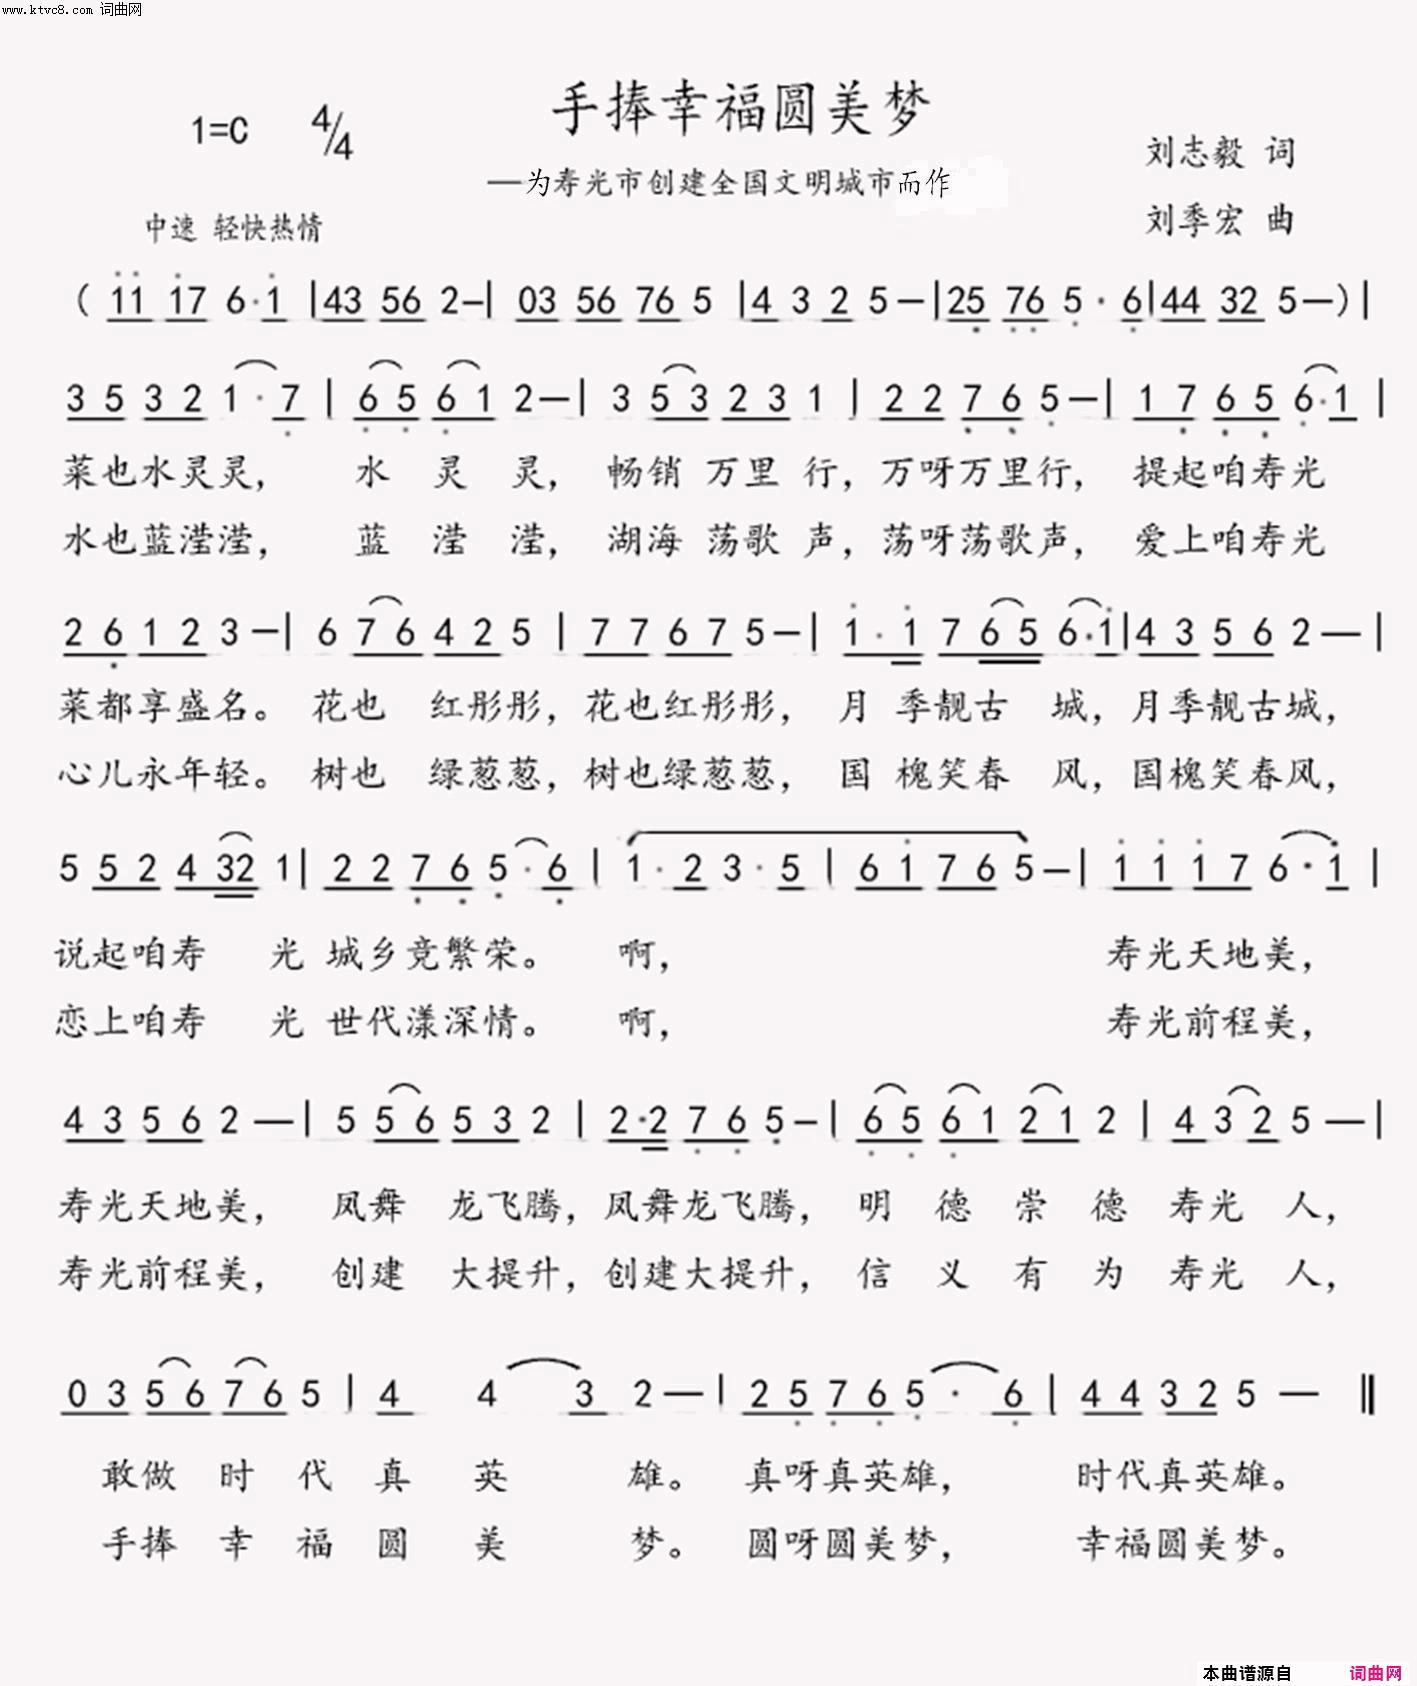 www.ktvc8.com 词曲网
手捧幸福圆美梦
1=C 4/4
刘志毅 词
—为寿光市创建全国文明城市而作
刘季宏 曲
中速 轻快热情
( 11 17 6·1 |43 56 2—| 03 56 76 5 |4 3 2 5—|25 76 5·6|44 32 5—)|
3 5 3 2 1·7 | 6 5 6 1 2—| 3 5 3 2 3 1 | 2 2 7 6 5—| 1 7 6 5 6·1 |
菜也水灵灵, 水 灵 灵, 畅销 万里 行, 万呀万里行, 提起咱寿光
水也蓝滢滢, 蓝 滢 滢, 湖海 荡歌 声, 荡呀荡歌声, 爱上咱寿光
2 6 1 2 3—| 6 7 6 4 2 5 | 7 7 6 7 5—| 1·1 7 6 5 6·1|4 3 5 6 2—|
菜都享盛名。 花也 红彤彤, 花也红彤彤, 月 季靓古 城, 月季靓古城,
心儿永年轻。 树也 绿葱葱, 树也绿葱葱, 国 槐笑春 风, 国槐笑春风,
5 5 2 4 32 1| 2 2 7 6 5·6 | 1·2 3·5 | 6 1 7 6 5—| 1 1 1 7 6·1 |
说起咱寿 光 城乡竞繁荣。 啊, 寿光天地美,
恋上咱寿 光 世代漾深情。 啊, 寿光前程美,
4 3 5 6 2—| 5 5 6 5 3 2 | 2·2 7 6 5—| 6 5 6 1 2 1 2 | 4 3 2 5—|
寿光天地美, 凤舞 龙飞腾, 凤舞龙飞腾, 明 德 崇 德 寿光 人,
寿光前程美, 创建 大提升, 创建大提升, 信 义 有 为 寿光 人,
0 3 5 6 7 6 5 | 4 4 3 2—| 2 5 7 6 5·6 | 4 4 3 2 5 — ‖
敢做 时 代 真 英 雄。 真呀真英雄, 时代真英雄。
手捧 幸 福 圆 美 梦。 圆呀圆美梦, 幸福圆美梦。
本曲谱源自 词曲网